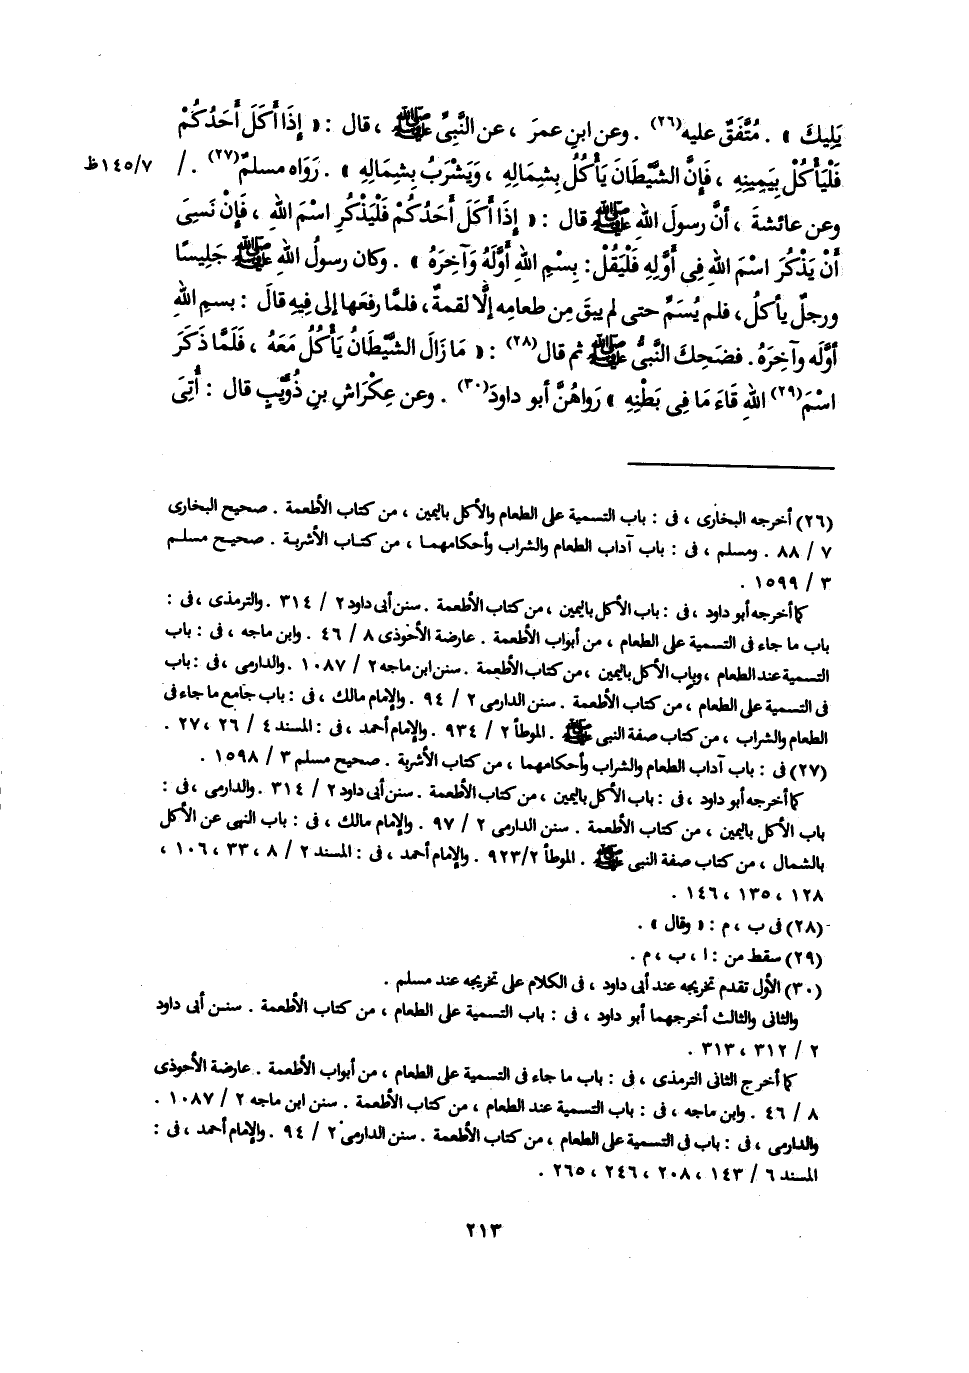 يَلِيكَ » . مُتَّفَقٌ عليه(٢٦) . وعن ابنِ عمرَ ، عن النَّبِىِّ ﷺ ، قال : « إِذَا أَكَلَ أَحَدُكُمْ
فَلْيَأْكُلْ بِيَمِينِهِ ، فَإِنَّ الشَّيْطَانَ يَأْكُلُ بِشِمَالِهِ ، وَيَشْرَبُ بِشِمَالِهِ » . رَوَاه مسلمٌ(٢٧) . / ١٤٥/٧ظ
وعن عائشةَ ، أنَّ رسولَ اللهِ ﷺ قال : « إِذَا أَكَلَ أَحَدُكُمْ فَلْيَذْكُرِ اسْمَ اللهِ ، فَإِنْ نَسِىَ
أَنْ يَذْكُرَ اسْمَ اللهِ فِى أَوَّلِهِ فَلْيَقُلْ : بِسْمِ اللهِ أَوَّلَهُ وَآخِرَهُ » . وكان رسولُ اللهِ ﷺ جَلِيسًا
ورجلٌ يأكلُ ، فلم يُسَمِّ حتى لم يبقَ مِن طعامِه إلَّا لقمةٌ ، فلمَّا رفعَها إلى فِيهِ قالَ : بسمِ اللهِ
أوَّلَه وآخِرَهُ . فضَحِكَ النَّبِىُّ ﷺ ثم قال(٢٨) : « مَا زَالَ الشَّيْطَانُ يَأْكُلُ مَعَهُ ، فَلَمَّا ذَكَرَ
اسْمَ(٢٩) اللهِ قَاءَ مَا فِى بَطْنِهِ » رَواهُنَّ أبو داودَ(٣٠) . وعن عِكْراشِ بنِ ذُوَّيْبٍ قال : أُتِىَ
(٢٦) أخرجه البخارى ، فى : باب التسمية على الطعام والأكل باليمين ، من كتاب الأطعمة . صحيح البخارى
٧ / ٨٨ . ومسلم ، فى : باب آداب الطعام والشراب وأحكامهما ، من كتاب الأشربة . صحيح مسلم
٣ / ١٥٩٩ .
كما أخرجه أبو داود ، فى : باب الأكل باليمين ، من كتاب الأطعمة . سنن أبى داود ٢ / ٣١٤ . والترمذى ، فى :
باب ما جاء فى التسمية على الطعام ، من أبواب الأطعمة . عارضة الأحوذى ٨ / ٤٦ . وابن ماجه ، فى : باب
التسمية عند الطعام ، وباب الأكل باليمين ، من كتاب الأطعمة . سنن ابن ماجه ٢ / ١٠٨٧ . والدارمى ، فى : باب
فى التسمية على الطعام ، من كتاب الأطعمة . سنن الدارمى ٢ / ٩٤ . والإمام مالك ، فى : باب جامع ما جاء فى
الطعام والشراب ، من كتاب صفة النبى ﷺ . الموطأ ٢ / ٩٣٤ . والإمام أحمد ، فى : المسند ٤ / ٢٦ ، ٢٧ .
(٢٧) فى : باب آداب الطعام والشراب وأحكامهما ، من كتاب الأشربة . صحيح مسلم ٣ / ١٥٩٨ .
كما أخرجه أبو داود ، فى : باب الأكل باليمين ، من كتاب الأطعمة . سنن أبى داود ٢ / ٣١٤ . والدارمى ، فى :
باب الأكل باليمين ، من كتاب الأطعمة . سنن الدارمى ٢ / ٩٧ . والإمام مالك ، فى : باب النهى عن الأكل
بالشمال ، من كتاب صفة النبى ﷺ . الموطأ ٩٢٣/٢ . والإمام أحمد ، فى : المسند ٢ / ٨ ، ٣٣ ، ١٠٦ ،
١٢٨ ، ١٣٥ ، ١٤٦ .
(٢٨) فى ب ، م : « وقال » .
(٢٩) سقط من : ا ، ب ، م .
(٣٠) الأول تقدم تخريجه عند أبى داود ، فى الكلام على تخريجه عند مسلم .
والثانى والثالث أخرجهما أبو داود ، فى : باب التسمية على الطعام ، من كتاب الأطعمة . سنن أبى داود
٢ / ٣١٢ ، ٣١٣ .
كما أخرج الثانى الترمذى ، فى : باب ما جاء فى التسمية على الطعام ، من أبواب الأطعمة . عارضة الأحوذى
٨ / ٤٦ . وابن ماجه ، فى : باب التسمية عند الطعام ، من كتاب الأطعمة . سنن ابن ماجه ٢ / ١٠٨٧ .
والدارمى ، فى : باب فى التسمية على الطعام ، من كتاب الأطعمة . سنن الدارمى ٢ / ٩٤ . والإمام أحمد ، فى :
المسند ٦ / ١٤٣ ، ٢٠٨ ، ٢٤٦ ، ٢٦٥ .
٢١٣